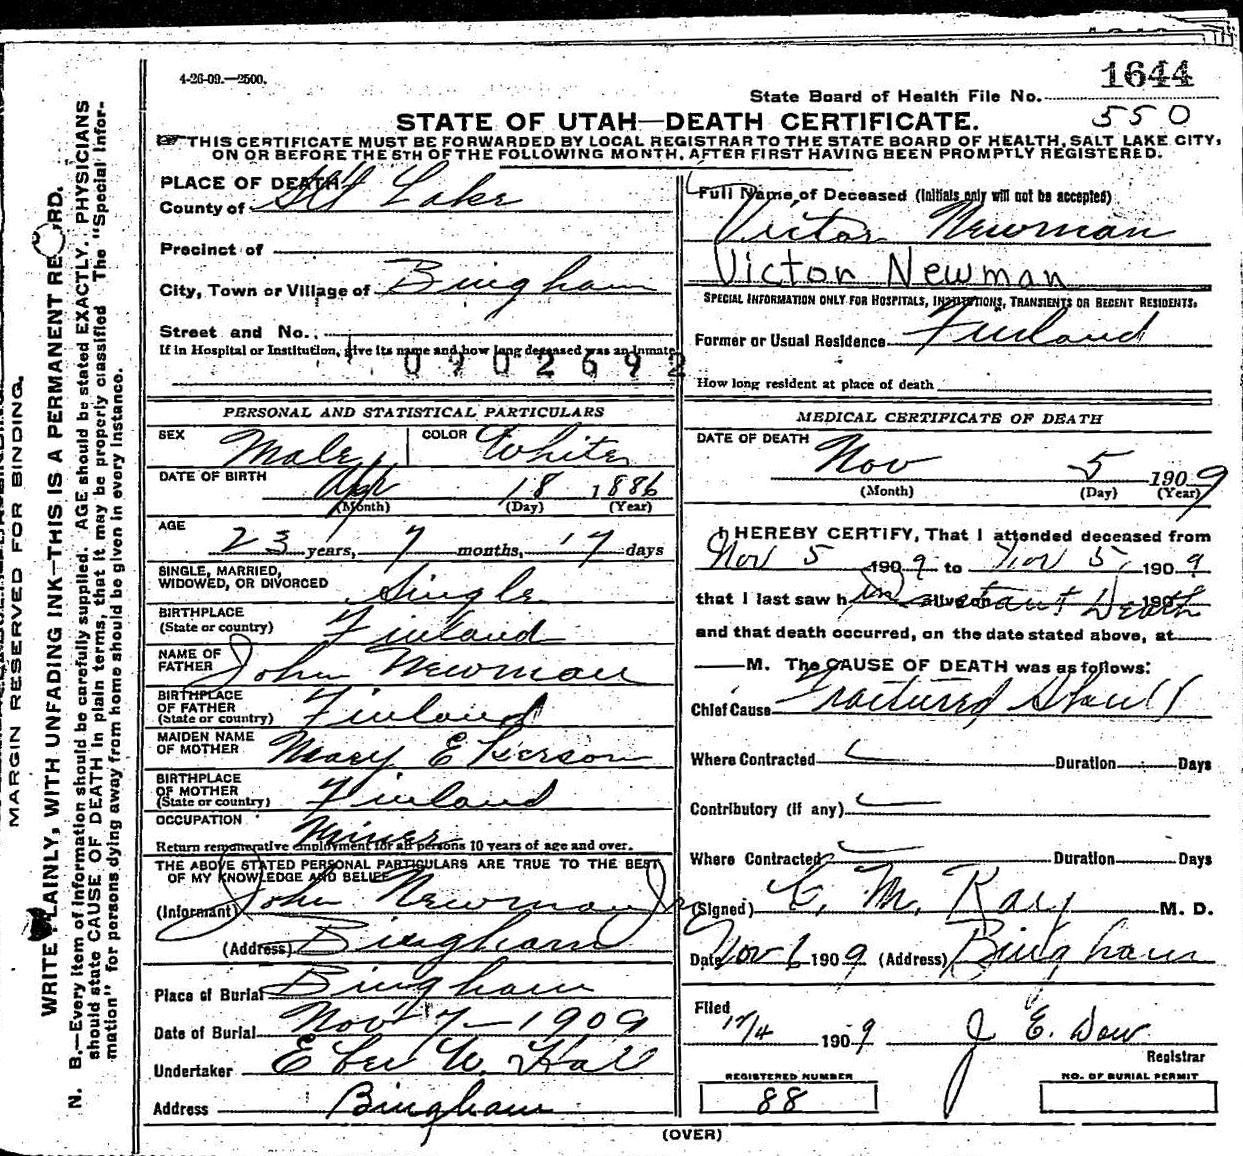 1644
4-26-09.—2500.
State Board of Health File No.
550
STATE OF UTAH—DEATH CERTIFICATE.
THIS CERTIFICATE MUST BE FORWARDED BY LOCAL REGISTRAR TO THE STATE BOARD OF HEALTH, SALT LAKE CITY,
ON OR BEFORE THE 5TH OF THE FOLLOWING MONTH, AFTER FIRST HAVING BEEN PROMPTLY REGISTERED.
PLACE OF DEATH
County of Slt Lake
Precinct of
City, Town or Village of Bingham
Street and No.
If in Hospital or Institution, give its name and how long deceased was an inmate
0702692
PERSONAL AND STATISTICAL PARTICULARS
SEX Male COLOR White
DATE OF BIRTH Apr 18, 1886
(Month) (Day) (Year)
AGE
23 years, 7 months, 17 days
SINGLE, MARRIED,
WIDOWED, OR DIVORCED Single
BIRTHPLACE
(State or country) Finland
NAME OF
FATHER John Newman
BIRTHPLACE
OF FATHER
(State or country) Finland
MAIDEN NAME
OF MOTHER Mary E
BIRTHPLACE
OF MOTHER
(State or country) Finland
OCCUPATION Miner
Return remunerative employment for all persons 10 years of age and over.
THE ABOVE STATED PERSONAL PARTICULARS ARE TRUE TO THE BEST
OF MY KNOWLEDGE AND BELIEF
(Informant) John Newman Jr
(Address) Bingham
Place of Burial Bingham
Date of Burial Nov 7—1909
Undertaker Eber W. Hall
Address Bingham
Full Name of Deceased (Initials only will not be accepted)
Victor Newman
Victor Newman
SPECIAL INFORMATION ONLY FOR HOSPITALS, INSTITUTIONS, TRANSIENTS OR RECENT RESIDENTS.
Former or Usual Residence Finland
How long resident at place of death
MEDICAL CERTIFICATE OF DEATH
DATE OF DEATH
Nov 5 1909
(Month) (Day) (Year)
I HEREBY CERTIFY, That I attended deceased from
Nov 5 1909 to Nov 5, 1909
that I last saw h alive on 190 Instant Death
and that death occurred, on the date stated above, at
M. The CAUSE OF DEATH was as follows:
Chief Cause Fractured Skull
Where Contracted Duration Days
Contributory (if any)
Where Contracted Duration Days
(Signed) M. Ray M. D.
Date Nov 6 1909 (Address) Bingham
Filed
12/4 1909 J E. Dow
Registrar
REGISTERED NUMBER NO. OF BURIAL PERMIT
88
(OVER)
MARGIN RESERVED FOR BINDING.
WRITE PLAINLY, WITH UNFADING INK—THIS IS A PERMANENT RECORD.
N. B.—Every item of information should be carefully supplied. AGE should be stated EXACTLY. PHYSICIANS
should state CAUSE OF DEATH in plain terms, that it may be properly classified. The "Special Infor-
mation" for persons dying away from home should be given in every instance.